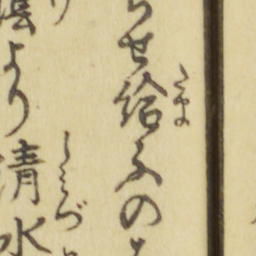 らせ給ふの
たま
より清水
しみづ